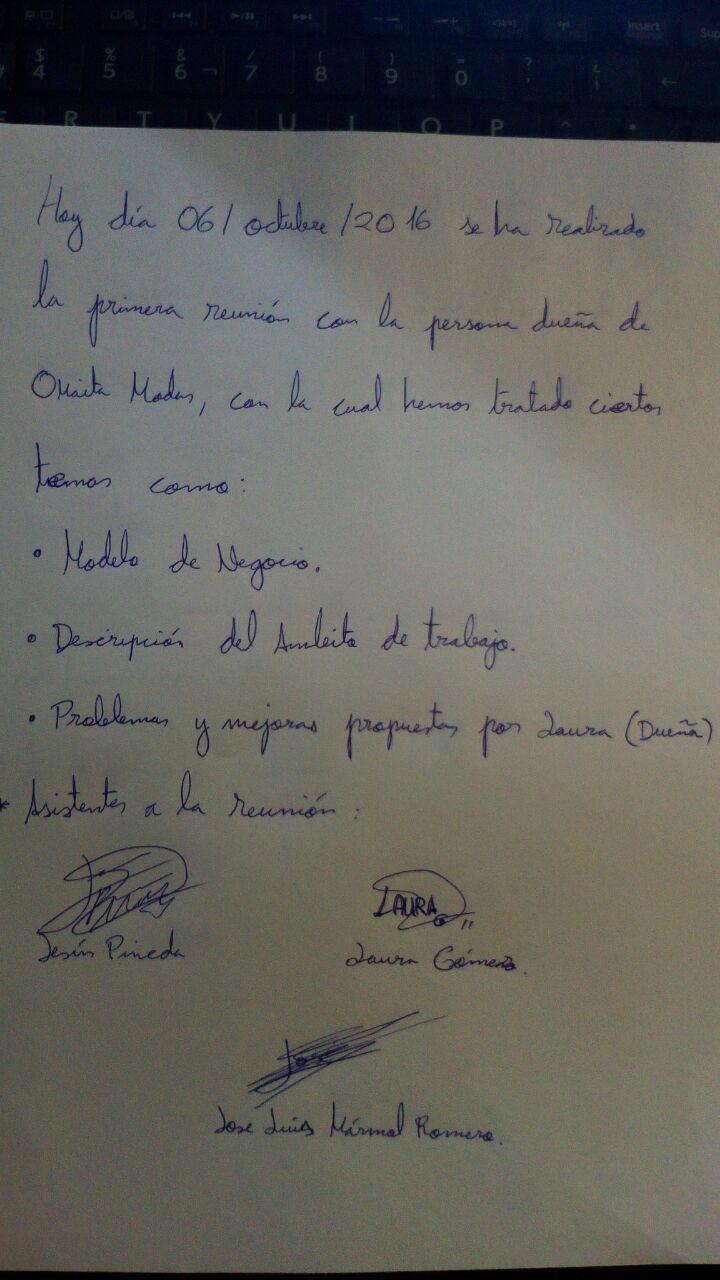 $ % & / ( ) = ? ¿
4 5 6 ¬ 7 8 9 0 ' ¡ ←
E R T Y U I O P ^ *
Insert
Hoy día 06/octubre/2016 se ha realizado
la primera reunión con la persona dueña de
OMaita Modas, con la cual hemos tratado ciertos
temas como:
• Modelo de Negocio.
• Descripción del Ambito de trabajo.
• Problemas y mejoras propuestas por Laura (Dueña)
* Asistentes a la reunión:
LAURA
Jesús Pineda
Laura Gómez.
Jose
Jose Luis Mármol Romero.